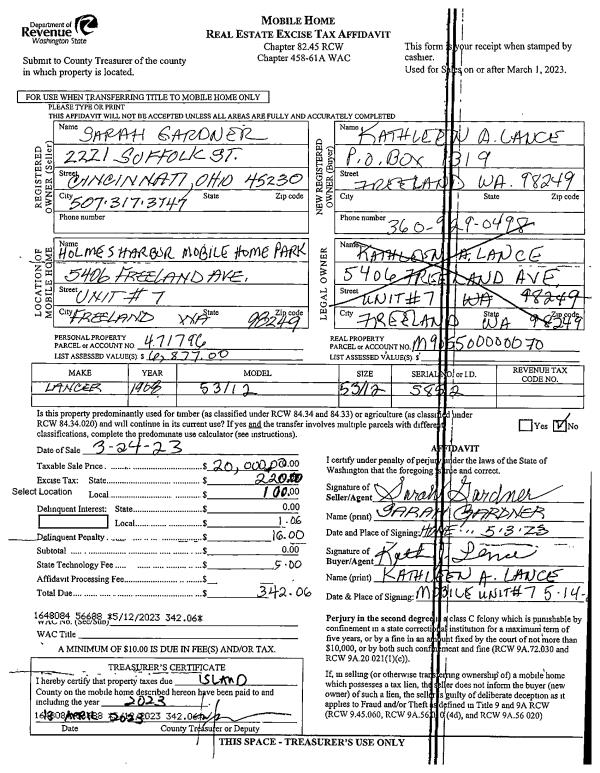 Department of
Revenue
Washington State
MOBILE HOME
REAL ESTATE EXCISE TAX AFFIDAVIT
Chapter 82.45 RCW
Chapter 458-61A WAC
Submit to County Treasurer of the county
in which property is located.
This form is your receipt when stamped by
cashier.
Used for Sales on or after March 1, 2023.
FOR USE WHEN TRANSFERRING TITLE TO MOBILE HOME ONLY
PLEASE TYPE OR PRINT
THIS AFFIDAVIT WILL NOT BE ACCEPTED UNLESS ALL AREAS ARE FULLY AND ACCURATELY COMPLETED
REGISTERED
OWNER (Seller)
Name
SARAH GARDNER
2221 SUFFOLK ST.
Street
CINCINNATI, OHIO 45230
City State Zip code
507-317-3747
Phone number
NEW REGISTERED
OWNER (Buyer)
Name
KATHLEEN A. LANCE
P.O. BOX 1319
Street
FREELAND WA. 98249
City State Zip code
Phone number
360-929-0498
LOCATION OF
MOBILE HOME
Name
HOLMES HARBOR MOBILE HOME PARK
5406 FREELAND AVE.
Street
UNIT # 7
City State Zip code
FREELAND WA 98249
LEGAL OWNER
Name
KATHLEEN A. LANCE
5406 FREELAND AVE
Street
UNIT #7 WA 98249
City State Zip code
FREELAND WA 98249
PERSONAL PROPERTY
PARCEL or ACCOUNT NO. 471796
LIST ASSESSED VALUE(S) $ 6,877.00
REAL PROPERTY
PARCEL or ACCOUNT NO.
LIST ASSESSED VALUE(S) $
MAKE YEAR MODEL SIZE SERIAL NO. or I.D. REVENUE TAX CODE NO.
LANCER 1968 53/12 53/12 5852
Is this property predominantly used for timber (as classified under RCW 84.34 and 84.33) or agriculture (as classified under
RCW 84.34.020) and will continue in its current use? If yes and the transfer involves multiple parcels with different
classifications, complete the predominate use calculator (see instructions).
Yes No
Date of Sale 3-24-23
Taxable Sale Price $ 20,000.00
Excise Tax: State $ 220.00
Select Location Local $ 100.00
Delinquent Interest: State $ 0.00
Local $ 1.06
Delinquent Penalty $ 16.00
Subtotal $ 0.00
State Technology Fee $ 5.00
Affidavit Processing Fee $
Total Due $ 342.06
1648084 56688 $5/12/2023 342.06*
WAC No. (Sec/Sub)
WAC Title
A MINIMUM OF $10.00 IS DUE IN FEE(S) AND/OR TAX.
TREASURER'S CERTIFICATE
I hereby certify that property taxes due ISLAND
County on the mobile home described hereon have been paid to and
including the year 2023
2023 342.06
Date County Treasurer or Deputy
AFFIDAVIT
I certify under penalty of perjury under the laws of the State of
Washington that the foregoing is true and correct.
Signature of
Seller/Agent Sarah Gardner
Name (print) SARAH GARDNER
Date and Place of Signing: 5/3/23
Signature of
Buyer/Agent
Name (print) KATHLEEN A. LANCE
Date & Place of Signing: MOBILE UNIT #7 5-14-
Perjury in the second degree is a class C felony which is punishable by
confinement in a state correctional institution for a maximum term of
five years, or by a fine in an amount fixed by the court of not more than
$10,000, or by both such confinement and fine (RCW 9A.72.030 and
RCW 9A.20 021(1)(c)).
If, in selling (or otherwise transferring ownership of) a mobile home
which possesses a tax lien, the seller does not inform the buyer (new
owner) of such a lien, the seller is guilty of deliberate deception as it
applies to Fraud and/or Theft as defined in Title 9 and 9A RCW
(RCW 9.45.060, RCW 9A.56.010 (4d), and RCW 9A.56 020)
THIS SPACE - TREASURER'S USE ONLY